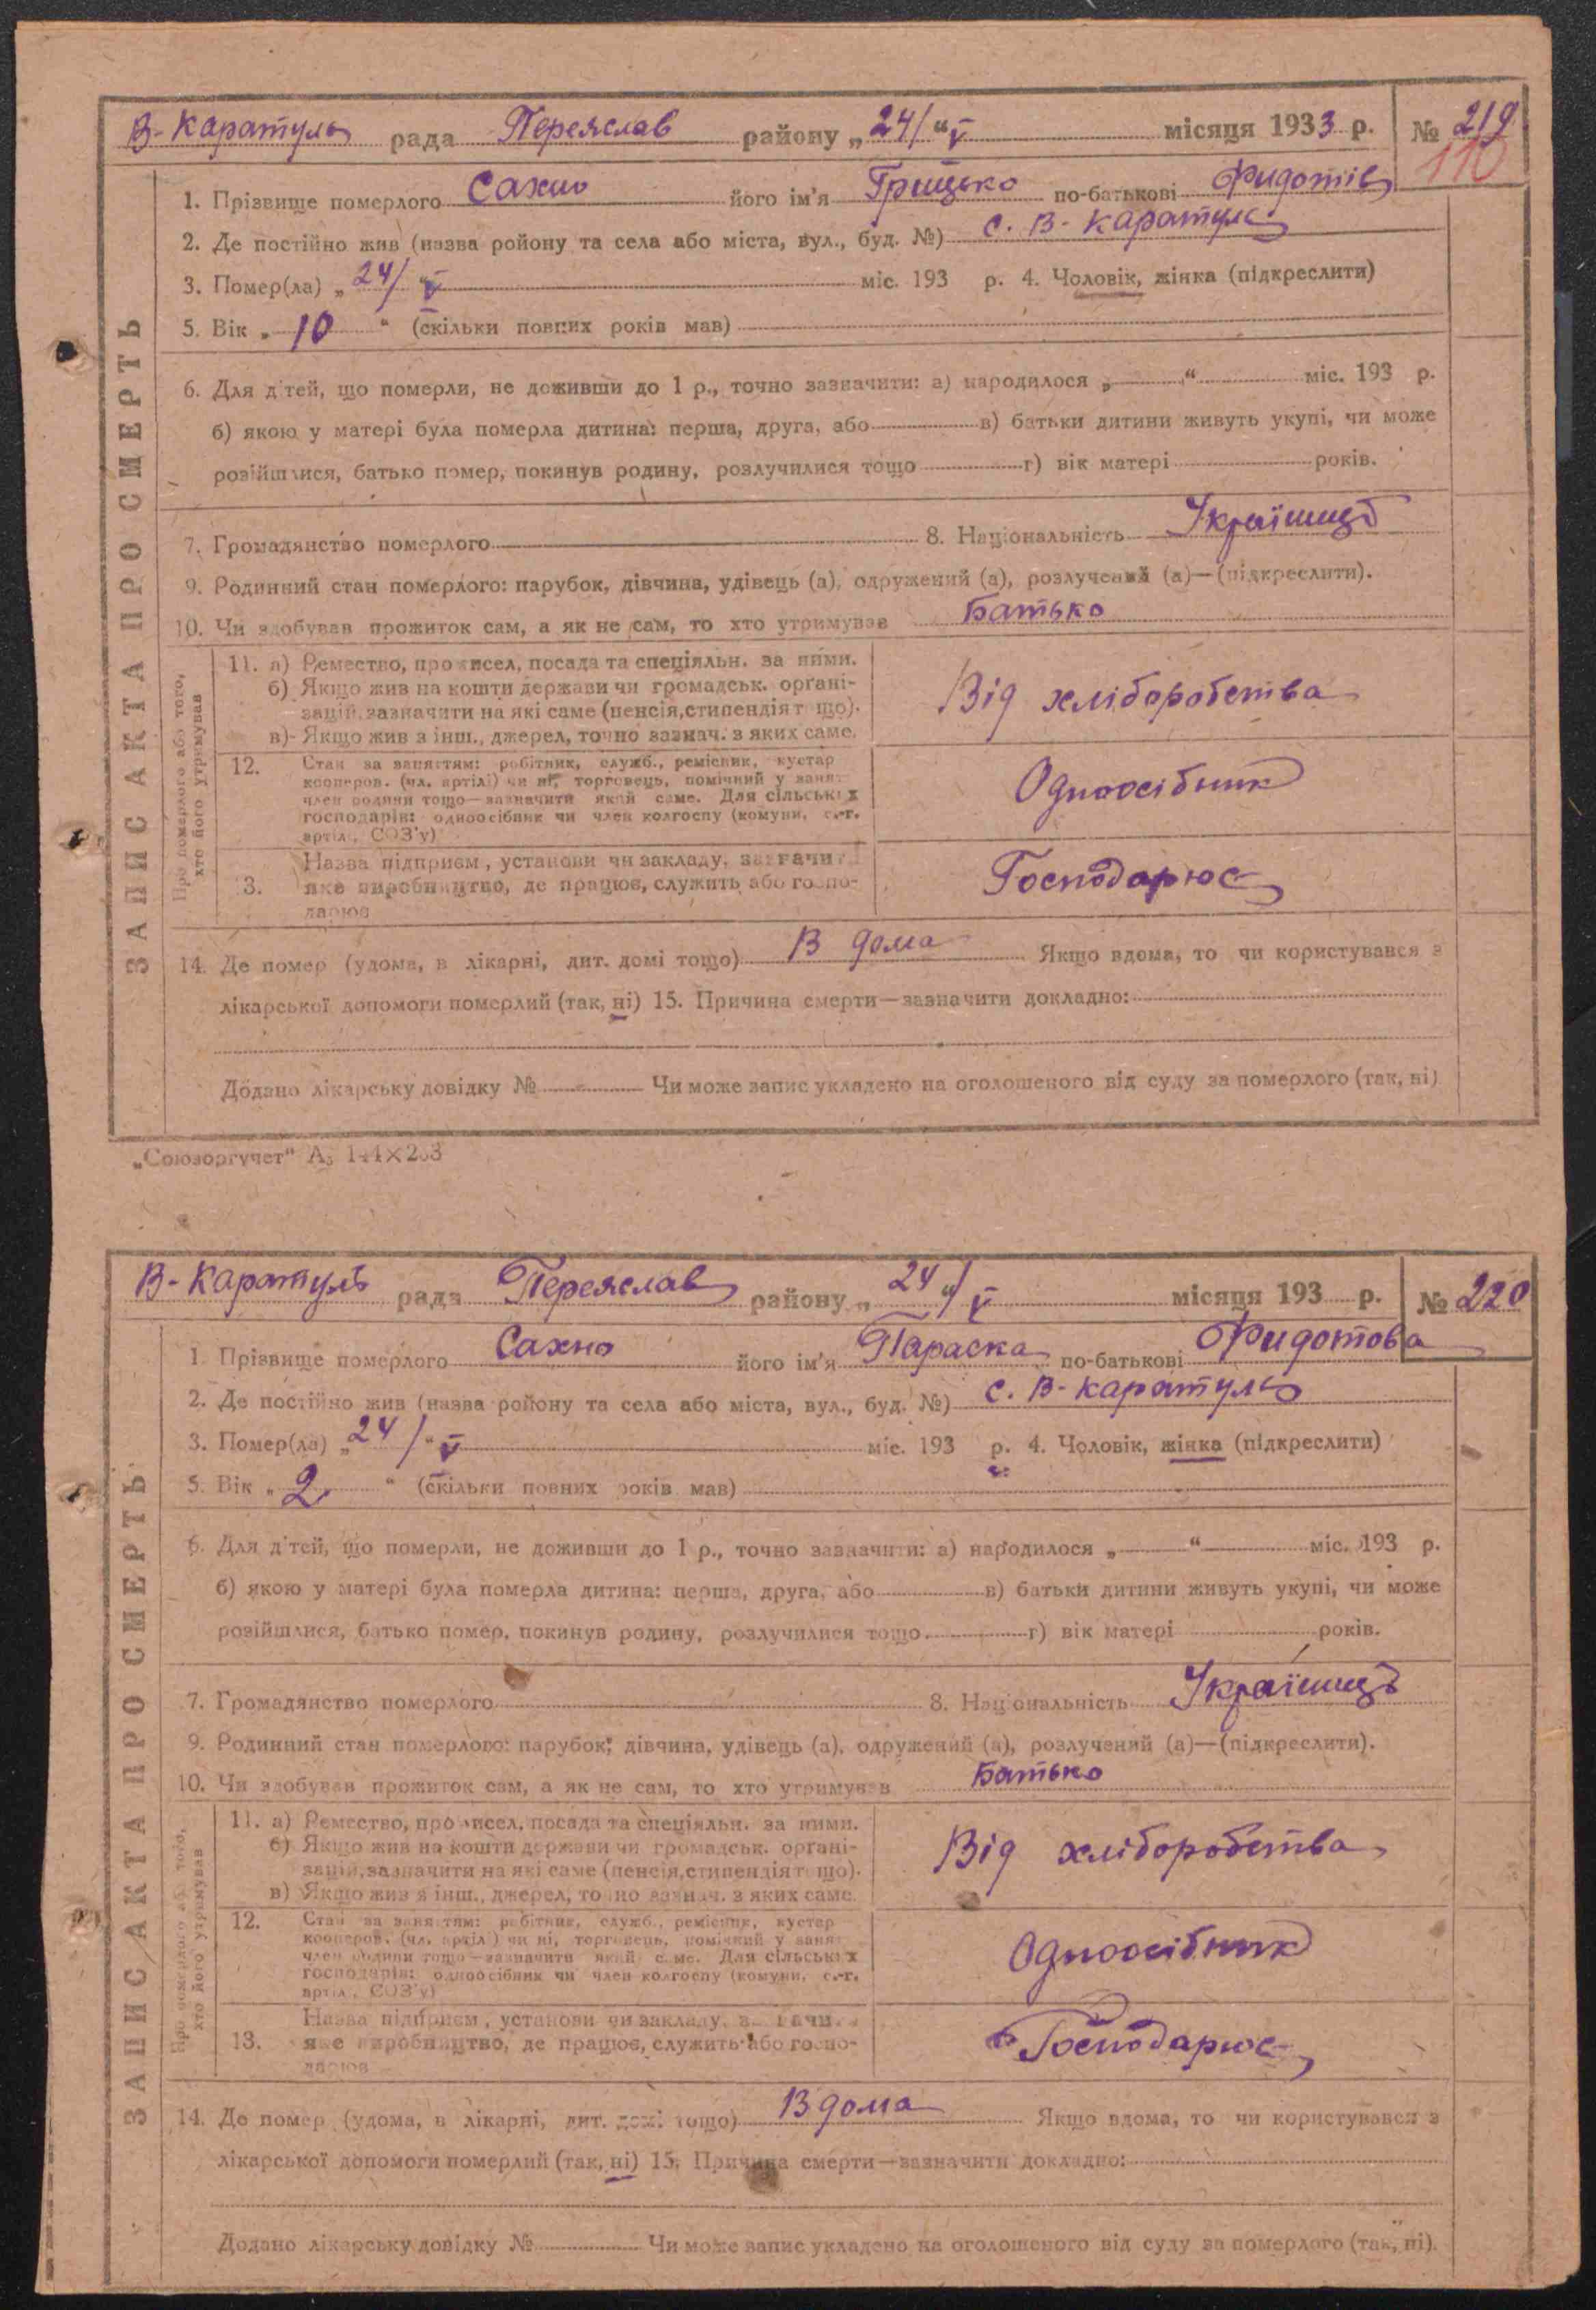 В-Каратуль рада Переяслав району „24/“ V місяця 1933 р. № 219
110
1. Прізвище померлого Сахно його ім'я Грицько по-батькові Фидотів
2. Де постійно жив (назва ройону та села або міста, вул., буд. №) с. В-Каратуль
3. Помер(ла) „24/“ V міс. 193 р. 4. Чоловік, жінка (підкреслити)
5. Вік „10“ (скільки повних років мав)
6. Для дітей, що померли, не доживши до 1 р., точно зазначити: а) народилося „ “ міс. 193 р.
б) якою у матері була померла дитина: перша, друга, або в) батьки дитини живуть укупі, чи може
розійшлися, батько помер, покинув родину, розлучилися тощо г) вік матері років.
7. Громадянство померлого 8. Національність Українець
9. Родинний стан померлого: парубок, дівчина, удівець (а), одружений (а), розлучений (а)—(підкреслити).
10. Чи здобував прожиток сам, а як не сам, то хто утримував Батько
ЗАПИС АКТА ПРО СМЕРТЬ
Про померлого або того,
хто його утримував
11. а) Ремество, промисел, посада та спеціяльн. за ними.
б) Якщо жив на кошти держави чи громадськ. органі-
зацій, зазначити на які саме (пенсія, стипендія т що).
в) Якщо жив з інш., джерел, точно зазнач. з яких саме.
Від хліборобства
12. Стан за заняттям: робітник, служб., ремісник, кустар
кооперов. (чл. артілі) чи ні, торговець, помічний у занят
член родини тощо—зазначити який саме. Для сільських
господарів: одноосібник чи член колгоспу (комуни, с.-г.
артіл., СОЗ'у)
Одноосібник
Назва підприєм, установи чи закладу, зазначити
3. яке виробництво, де працює, служить або госпо-
дарює
Господарює
14. Де помер (удома, в лікарні, дит. домі тощо) В дома Якщо вдома, то чи користувався з
лікарської допомоги померлий (так, ні) 15. Причина смерти—зазначити докладно:
Додано лікарську довідку № - Чи може запис укладено на оголошеного від суду за померлого (так, ні)
„Союзоргучет“ А5 144×203
В-Каратуль рада Переяслав району „24“/ V місяця 193 р. № 220
1. Прізвище померлого Сахно його ім'я Параска по-батькові Фидотова
2. Де постійно жив (назва ройону та села або міста, вул., буд. №) с. В-Каратуль
3. Помер(ла) „24/“ V міс. 193 р. 4. Чоловік, жінка (підкреслити)
5. Вік „2“ (скільки повних років мав)
6. Для дітей, що померли, не доживши до 1 р., точно зазначити: а) народилося „ “ міс. 193 р.
б) якою у матері була померла дитина: перша, друга, або в) батьки дитини живуть укупі, чи може
розійшлися, батько помер, покинув родину, розлучилися тощо г) вік матері років.
7. Громадянство померлого 8. Національність Українець
9. Родинний стан померлого: парубок, дівчина, удівець (а), одружений (а), розлучений (а)—(підкреслити).
10. Чи здобував прожиток сам, а як не сам, то хто утримував Батько
ЗАПИС АКТА ПРО СМЕРТЬ
Про померлого або того,
хто його утримував
11. а) Ремество, промисел, посада та спеціяльн. за ними.
б) Якщо жив на кошти держави чи громадськ. органі-
зацій, зазначити на які саме (пенсія, стипендія т що).
в) Якщо жив з інш., джерел, точно зазнач. з яких саме.
Від хліборобства
12. Стан за заняттям: робітник, служб., ремісник, кустар
кооперов. (чл. артіл.) чи ні, торговець, помічний у занят
член родини тощо—зазначити який саме. Для сільських
господарів: одноосібник чи член колгоспу (комуни, с.-г.
артіл., СОЗ'у)
Одноосібник
Назва підприєм, установи чи закладу, зазначити
13. яке виробництво, де працює, служить або госпо-
дарює
Господарює
14. Де помер (удома, в лікарні, дит. домі тощо) В дома Якщо вдома, то чи користувався з
лікарської допомоги померлий (так, ні) 15. Причина смерти—зазначити докладно:
Додано лікарську довідку № Чи може запис укладено на оголошеного від суду за померлого (так, ні).